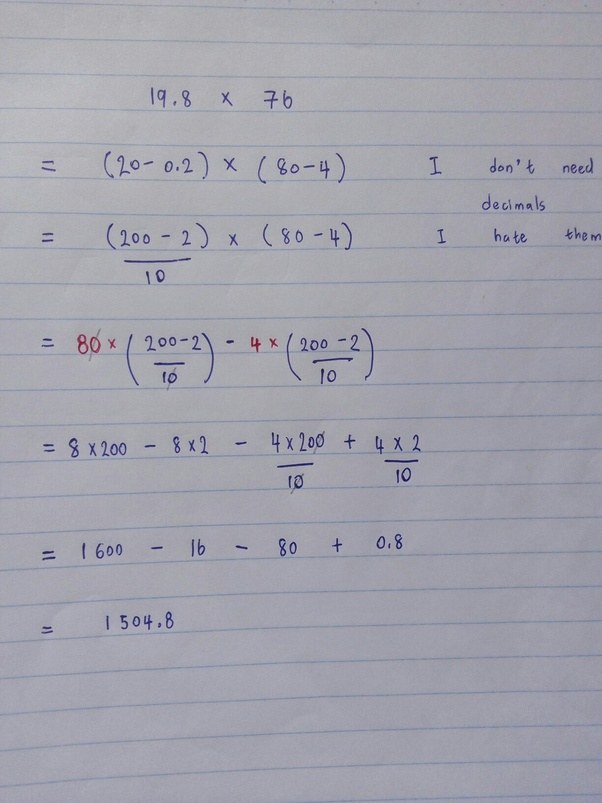 19.8 × 76
= (20 - 0.2) × (80 - 4) I don't need
decimals
= (200 - 2) × (80 - 4) I hate them
10
= 80 × (200 - 2) - 4 × (200 - 2)
10 10
= 8 × 200 - 8 × 2 - 4 × 200 + 4 × 2
10 10
= 1600 - 16 - 80 + 0.8
= 1504.8